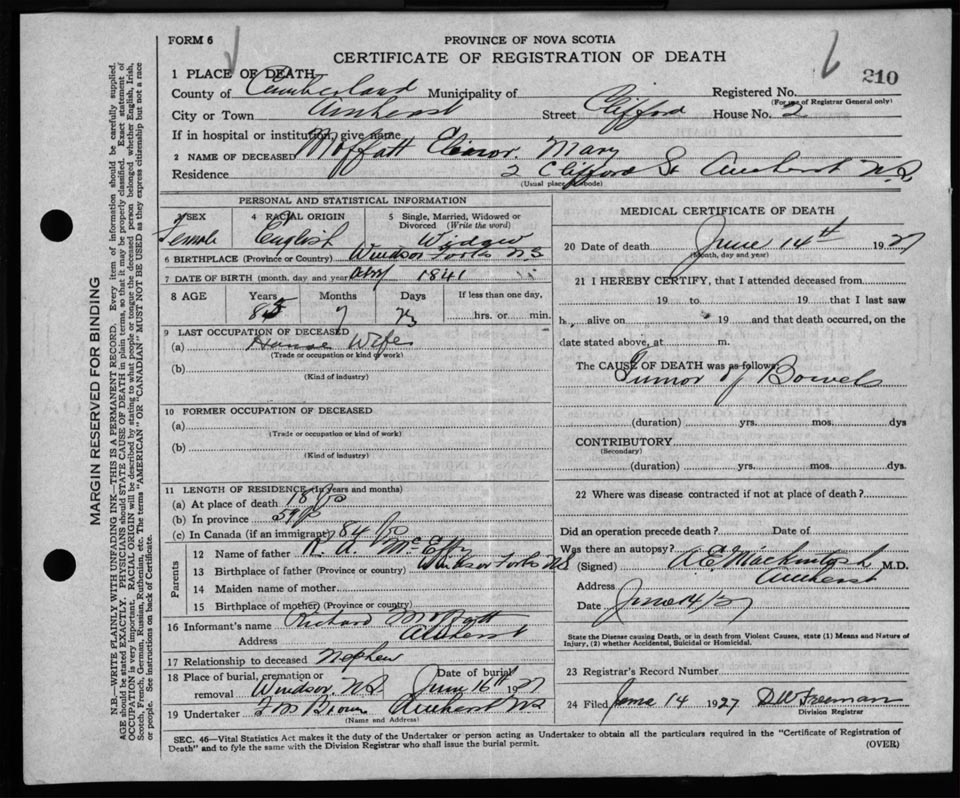 FORM 6
PROVINCE OF NOVA SCOTIA
CERTIFICATE OF REGISTRATION OF DEATH
210
1 PLACE OF DEATH
County of Cumberland Municipality of Registered No.
(For use of Registrar General only)
City or Town Amherst Street Clifford House No. 2
If in hospital or institution, give name
2 NAME OF DECEASED Moffatt Elinor Mary
Residence 2 Clifford St Amherst N.S.
(Usual place of abode)
PERSONAL AND STATISTICAL INFORMATION
3 SEX Female
4 RACIAL ORIGIN English
5 Single, Married, Widowed or Divorced (Write the word) Widow
6 BIRTHPLACE (Province or Country) Windsor Forks N.S
7 DATE OF BIRTH (month, day, and year) 1841
8 AGE Years Months 7 Days 23 If less than one day,
hrs. or min.
9 LAST OCCUPATION OF DECEASED
(a) House Wife
(Trade or occupation or kind of work)
(b)
(Kind of industry)
10 FORMER OCCUPATION OF DECEASED
(a)
(Trade or occupation or kind of work)
(b)
(Kind of industry)
11 LENGTH OF RESIDENCE (In years and months)
(a) At place of death 18
(b) In province
(c) In Canada (if an immigrant) 84
Parents
12 Name of father
13 Birthplace of father (Province or country) Windsor Forks N.S
14 Maiden name of mother
15 Birthplace of mother (Province or country)
16 Informant's name Richard Moffatt
Address Amherst
17 Relationship to deceased Nephew
18 Place of burial, cremation or removal Windsor, N.S Date of burial June 16th 1927
19 Undertaker Brown Amherst N.S
(Name and Address)
MEDICAL CERTIFICATE OF DEATH
20 Date of death June 14th 1927
(Month, day and year)
21 I HEREBY CERTIFY, that I attended deceased from
19 to 19 that I last saw
h alive on 19 and that death occurred, on the
date stated above, at m.
The CAUSE OF DEATH was as follows:
Tumor of Bowels
(duration) yrs. mos. dys
CONTRIBUTORY
(Secondary)
(duration) yrs. mos. dys.
22 Where was disease contracted if not at place of death?
Did an operation precede death? Date of
Was there an autopsy?
(Signed) A.E. Mackintosh M.D.
Address Amherst
Date June 14/27
State the Disease causing Death, or in death from Violent Causes, state (1) Means and Nature of
Injury, (2) whether Accidental, Suicidal or Homicidal.
23 Registrar's Record Number
24 Filed June 14 1927 D W Freeman
Division Registrar
SEC. 46—Vital Statistics Act makes it the duty of the Undertaker or person acting as Undertaker to obtain all the particulars required in the "Certificate of Registration of
Death" and to fyle the same with the Division Registrar who shall issue the burial permit. (OVER)
MARGIN RESERVED FOR BINDING
N.B.—WRITE PLAINLY WITH UNFADING INK—THIS IS A PERMANENT RECORD. Every item of information should be carefully supplied.
AGE should be stated EXACTLY. PHYSICIANS should STATE CAUSE OF DEATH in plain terms, so that it may be properly classified. Exact statement of
OCCUPATION is very important. RACIAL ORIGIN will be described by stating to what people or tongue the deceased person belonged whether English, Irish,
Scotch, French, German, Russian, Ruthenian, etc. The terms "AMERICAN" OR "CANADIAN" MUST NOT BE USED as they express citizenship but not a race
or people. See instructions on back of Certificate.